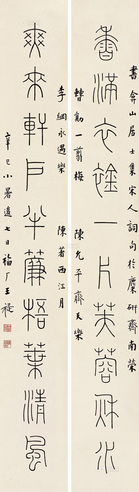 書弇山居士集宋人詞句於麋研齋南榮
香滿衣一片芙蓉秋水
曹勛一剪梅 陳允平齊天樂
李綱永遇樂 陳著西江月
爽來軒戶半簾梧葉清風
辛巳小暑過七日福厂王禔